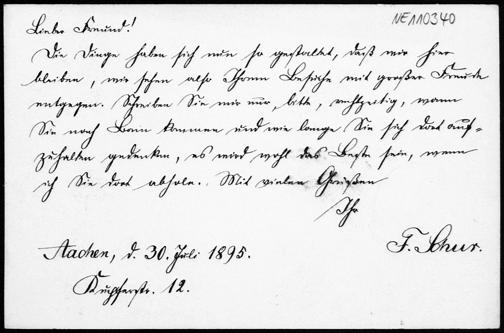 NE110340
Lieber Freund!
Die Dinge haben sich nun so gestaltet, daß wir hier
bleiben, wir sehen also Ihrem Besuche mit großer Freude
entgegen. Schreiben Sie mir nur, bitte, rechtzeitig, wann
Sie nach Bonn kommen und wie lange Sie sich dort auf-
zuhalten gedenken, es wird wohl das Beste sein, wenn
ich Sie dort abhole. Mit vielen Grüßen
Ihr
F. Schur.
Aachen, d. 30. Juli 1895.
Kupferstr. 12.